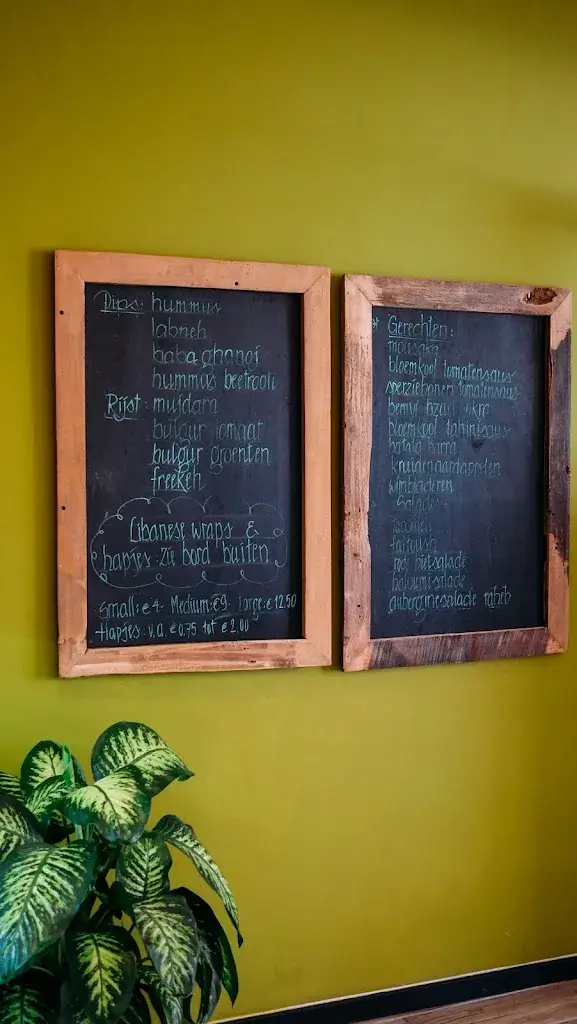 Dips: hummus
labneh
baba ghanoj
hummus beetrooti
Rijst: mujdara
bulgur tomaat
bulgur groenten
freekeh
Libanese wraps &
hapjes: zie bord buiten
Small: €4- Medium: €9- large: €12.50
Hapjes: v.a. €0.75 tot €2.00
Gerechten:
bloemkool tomatensaus
sperziebonen tomatensaus
bloemkool tahinisaus
batata harra
kruidenaardappelen
wijnbladeren
Salades:
haloumi salade
auberginesalade rahib